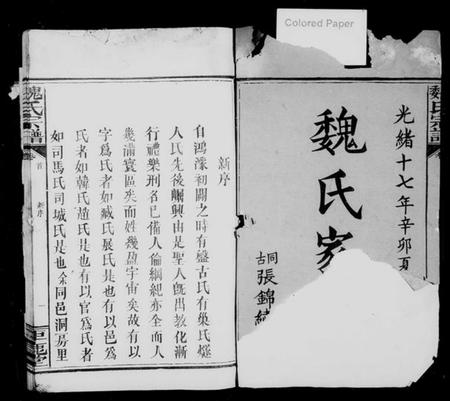 Colored Paper
光緒十七年辛卯夏
魏氏家
古同張錦
魏氏宗譜
新序
自鴻濛初闢之時有盤古氏有巢氏燧
人氏先後嗣興由是聖人旣出教化漸
行禮樂刑名已備人倫綱紀亦全而人
幾滿寰區矣而姓幾盈宇宙矣故有以
字爲氏者如臧氏展氏是也有以邑爲
氏者如韓氏趙氏是也有以官爲氏者
如司馬氏司城氏是也余同邑洞易里
魏氏宗譜
卷首
新序
一